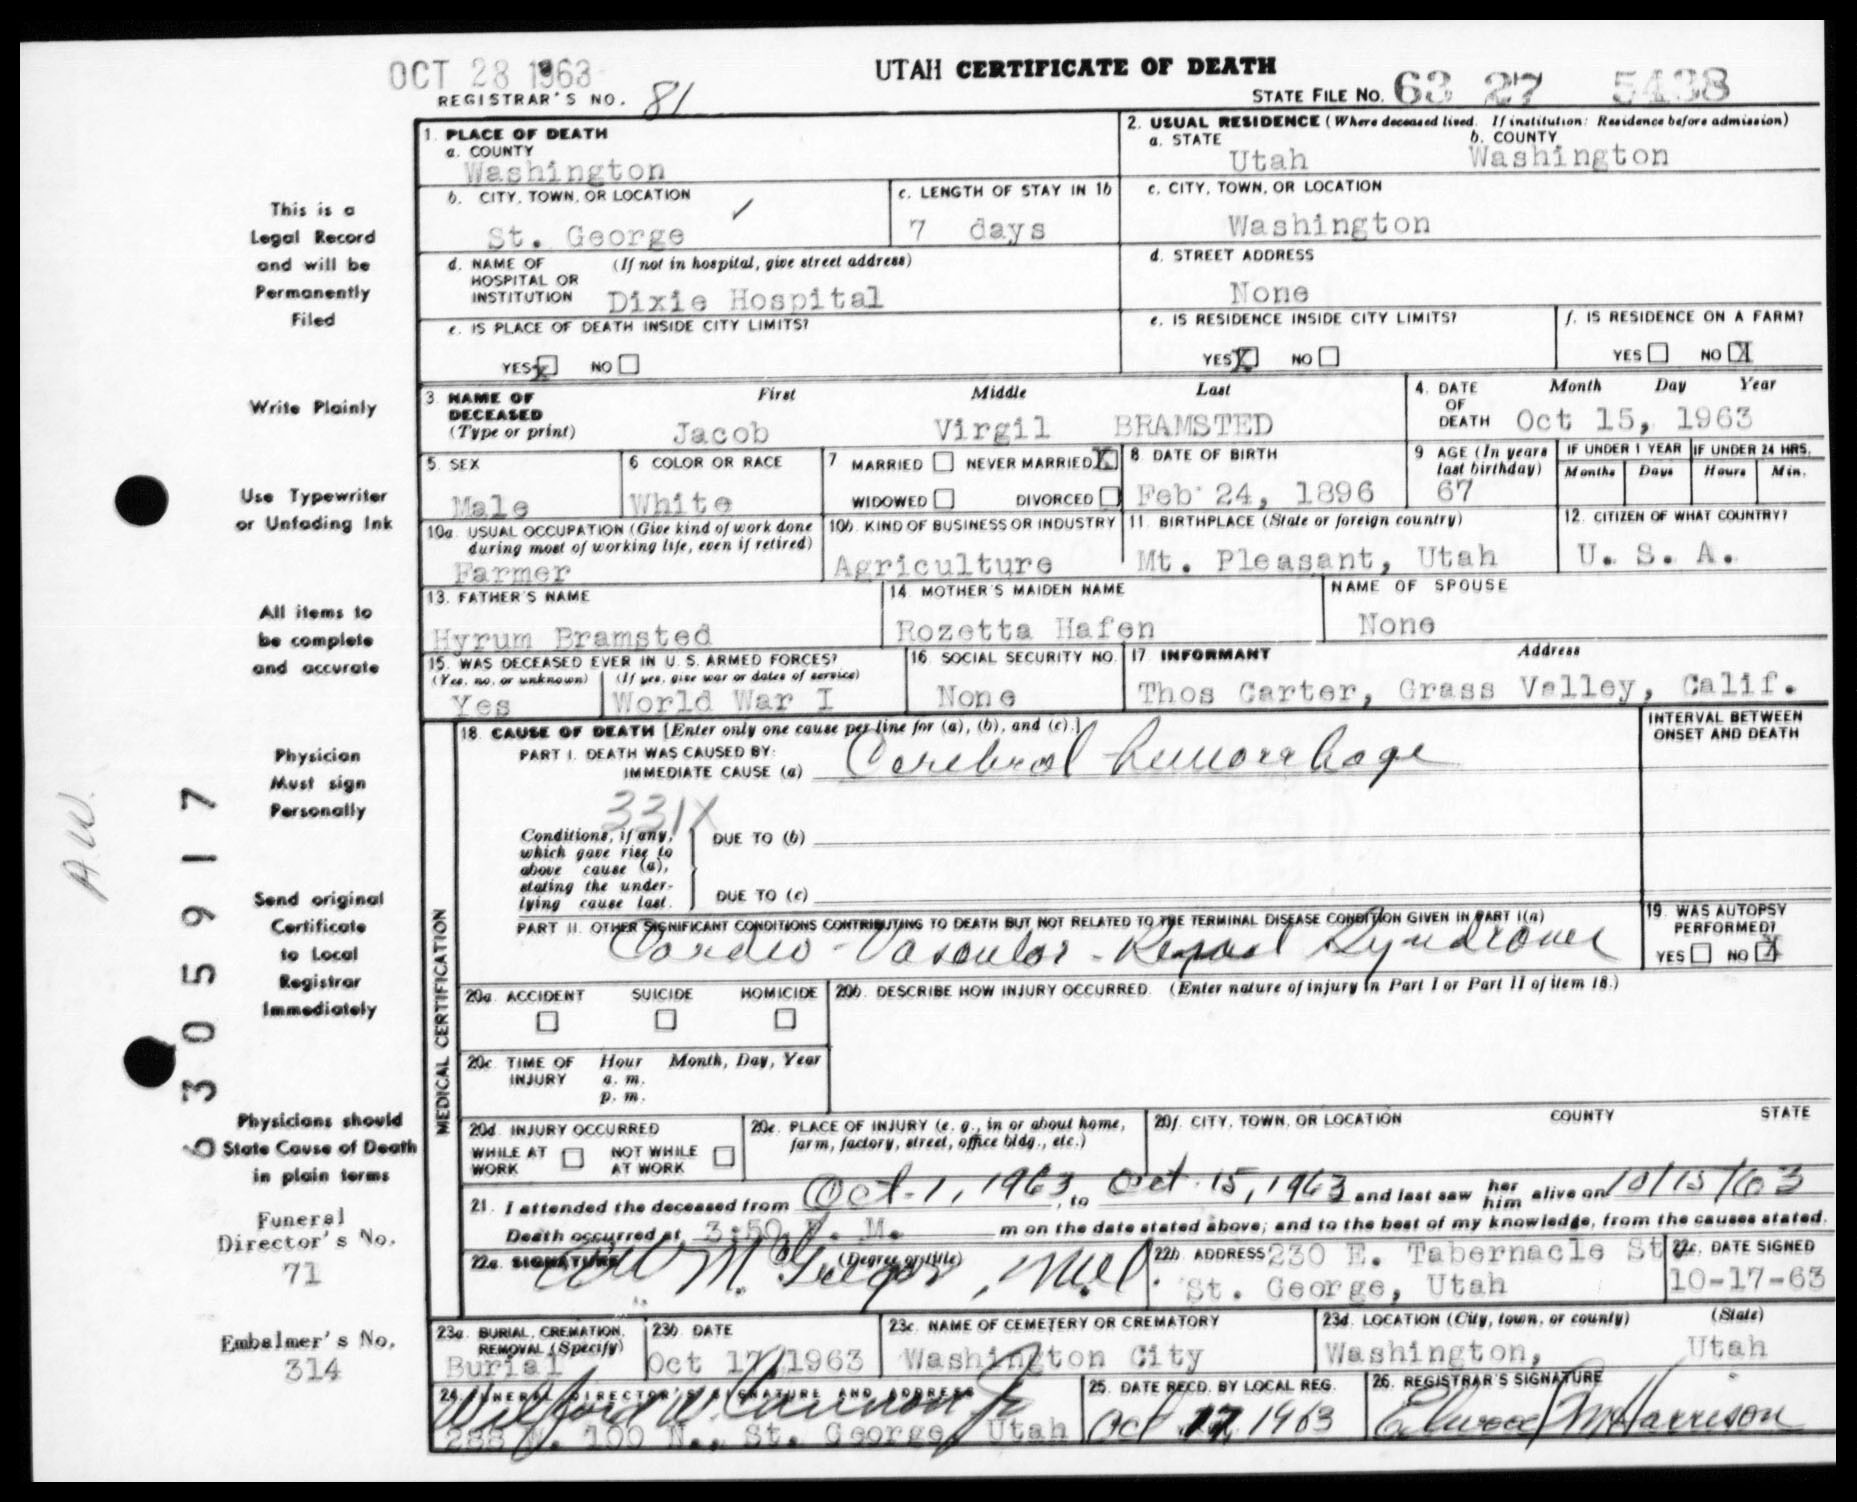 OCT 28 1963
UTAH CERTIFICATE OF DEATH
REGISTRAR'S NO. 81
STATE FILE NO. 63 27 5438
1. PLACE OF DEATH
a. COUNTY
Washington
2. USUAL RESIDENCE (Where deceased lived. If institution: Residence before admission)
a. STATE b. COUNTY
Utah Washington
b. CITY, TOWN, OR LOCATION
St. George
c. LENGTH OF STAY IN 1b
7 days
c. CITY, TOWN, OR LOCATION
Washington
d. NAME OF (If not in hospital, give street address)
HOSPITAL OR
INSTITUTION Dixie Hospital
d. STREET ADDRESS
None
e. IS PLACE OF DEATH INSIDE CITY LIMITS?
YES X NO
e. IS RESIDENCE INSIDE CITY LIMITS?
YES X NO
f. IS RESIDENCE ON A FARM?
YES NO X
3. NAME OF DECEASED (Type or print)
First Middle Last
Jacob Virgil BRAMSTED
4. DATE OF DEATH Month Day Year
Oct 15, 1963
5. SEX
Male
6 COLOR OR RACE
White
7 MARRIED NEVER MARRIED X
WIDOWED DIVORCED
8 DATE OF BIRTH
Feb 24, 1896
9 AGE (In years last birthday)
67
IF UNDER 1 YEAR IF UNDER 24 HRS.
Months Days Hours Min.
10a. USUAL OCCUPATION (Give kind of work done
during most of working life, even if retired)
Farmer
10b. KIND OF BUSINESS OR INDUSTRY
Agriculture
11. BIRTHPLACE (State or foreign country)
Mt. Pleasant, Utah
12. CITIZEN OF WHAT COUNTRY?
U. S. A.
13. FATHER'S NAME
Hyrum Bramsted
14. MOTHER'S MAIDEN NAME
Rozetta Hafen
NAME OF SPOUSE
None
15. WAS DECEASED EVER IN U. S. ARMED FORCES?
(Yes, no, or unknown) (If yes, give war or dates of service)
Yes World War I
16. SOCIAL SECURITY NO.
None
17. INFORMANT Address
Thos Carter, Grass Valley, Calif.
MEDICAL CERTIFICATION
18. CAUSE OF DEATH [Enter only one cause per line for (a), (b), and (c).]
INTERVAL BETWEEN
ONSET AND DEATH
PART I. DEATH WAS CAUSED BY:
IMMEDIATE CAUSE (a) Cerebral hemorrhage
331X
Conditions, if any,
which gave rise to
above cause (a),
stating the under-
lying cause last.
DUE TO (b)
DUE TO (c)
PART II. OTHER SIGNIFICANT CONDITIONS CONTRIBUTING TO DEATH BUT NOT RELATED TO THE TERMINAL DISEASE CONDITION GIVEN IN PART I(a)
Cardio-Vascular-Renal Syndrome
19. WAS AUTOPSY
PERFORMED?
YES NO X
20a. ACCIDENT SUICIDE HOMICIDE
20b. DESCRIBE HOW INJURY OCCURRED. (Enter nature of injury in Part I or Part II of item 18.)
20c. TIME OF INJURY Hour Month, Day, Year
a. m.
p. m.
20d. INJURY OCCURRED
WHILE AT WORK NOT WHILE AT WORK
20e. PLACE OF INJURY (e. g., in or about home,
farm, factory, street, office bldg., etc.)
20f. CITY, TOWN, OR LOCATION COUNTY STATE
21. I attended the deceased from Oct. 1, 1963, to Oct. 15, 1963 and last saw her him alive on 10/15/63
Death occurred at 3:50 P. M. m on the date stated above; and to the best of my knowledge, from the causes stated.
22a. SIGNATURE (Degree or title)
M. D.
22b. ADDRESS 230 E. Tabernacle St
St. George, Utah
22c. DATE SIGNED
10-17-63
23a. BURIAL, CREMATION,
REMOVAL (Specify)
Burial
23b. DATE
Oct 17, 1963
23c. NAME OF CEMETERY OR CREMATORY
Washington City
23d. LOCATION (City, town, or county) (State)
Washington, Utah
24. FUNERAL DIRECTOR'S SIGNATURE AND ADDRESS
Wilford W. Cannon Jr
288 W. 100 N., St. George, Utah
25. DATE RECD. BY LOCAL REG.
Oct 17, 1963
26. REGISTRAR'S SIGNATURE
Elwood M Harrison
This is a
Legal Record
and will be
Permanently
Filed
Write Plainly
Use Typewriter
or Unfading Ink
All items to
be complete
and accurate
Physician
Must sign
Personally
Send original
Certificate
to Local
Registrar
Immediately
Physicians should
State Cause of Death
in plain terms
Funeral
Director's No.
71
Embalmer's No.
314
A.W.
6305917